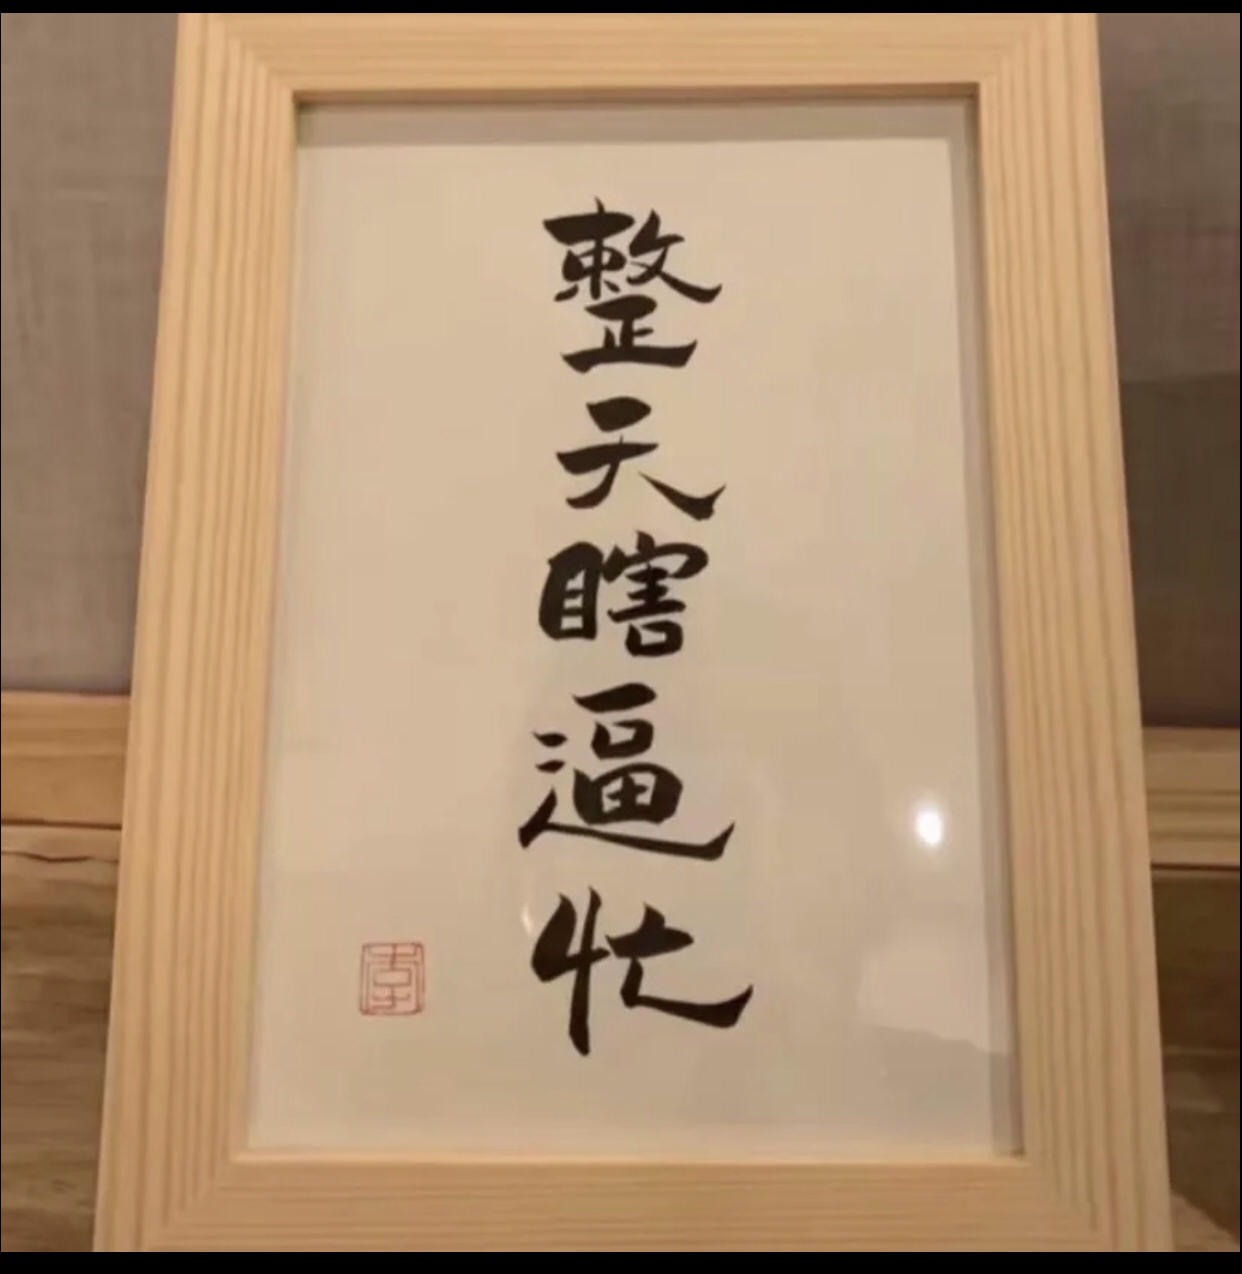 整天瞎逼忙